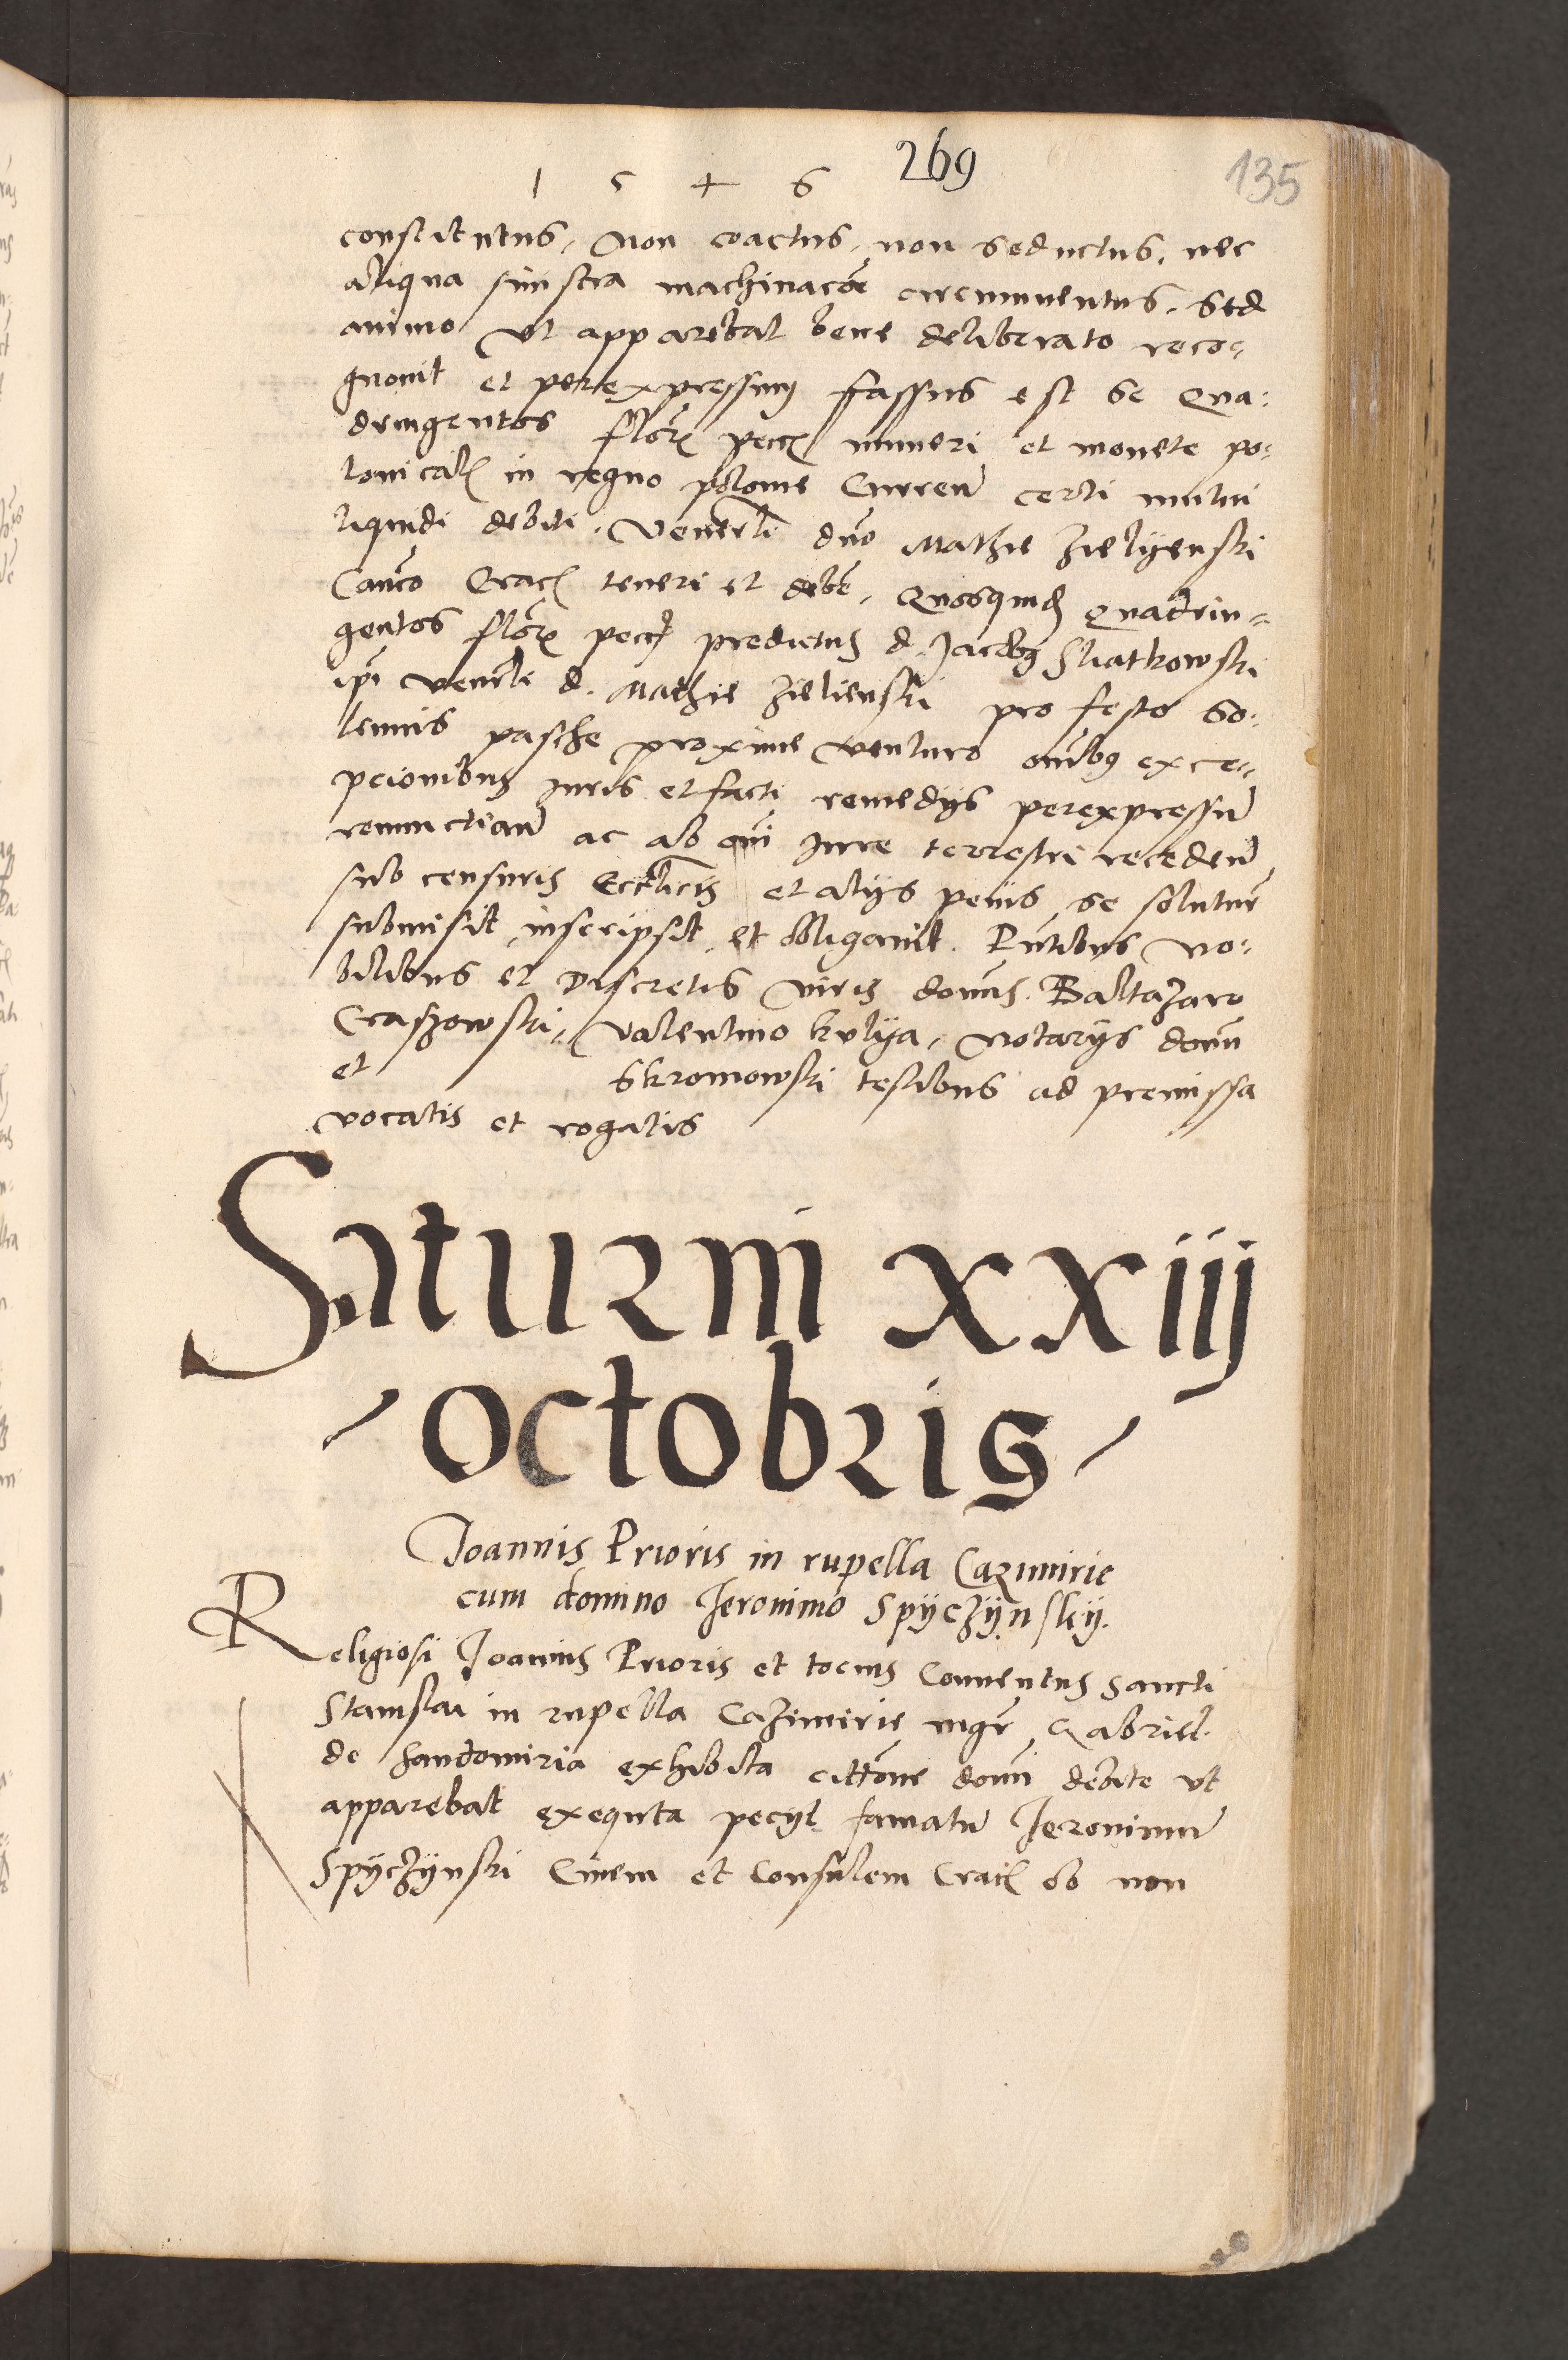 269
135
1 5 4 6
constitutus, Non coactus, non seductus, nec
aliqua sinistra machinacõe circumuentus, Sed
animo vt apparebat bene deliberato reco-
gnouit et perexpressum fassus est se Qua-
dringentos flor pecc numeri et monete po-
lonicał in regno polonie Curren̄ certi mutui
liquidi debiti. Venerłi dno Mathie Zielyenski
Canco Crac teneri et debē, Quosquid Quadrin-
gentos flor pecc predictus d. Jacobus Sliatkowski
ipi Venerłi d. Mathie Zielienski pro festo so-
lennis pasche proxime venturo om̄ibus exce-
pcionibus Iuris et facti remedys perexpressū
renunctian̄ ac ab om̄i Iure terrestri receden̄
sub censuris Eccłicis et alys penis se solutur̄
submisit, inscripsit, et obligauit. Pn̄tibus No-
bilibus et Discretis Viris domis. Baltazaro
Craszowski, Valentino kulya, Notarys dom̄
et Skromowski testibus ad premissa
vocatis et rogatis
Saturni XXiij
octobris
Joannis Prioris in rupella Cazimirie
cum domino Jeronimo Spyczynsky.
Religiosi Joannis Prioris et tocius Conuentus Sancti
Stanislai in rupella Cazimirie mgr̄ Gabriel
de Sandomiria exhibita cittõne dom̄ debite vt
apparebat exequta pecyt famatū Jeronimū
Spyczynski Ciuem et Consulem Crac ob non